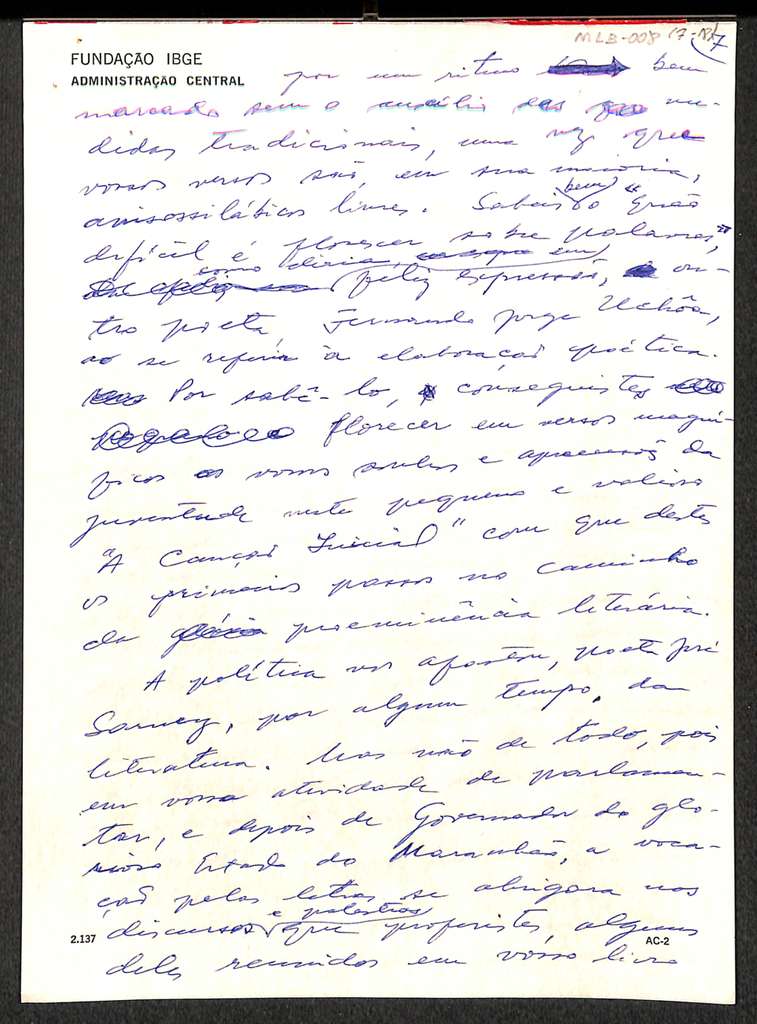 MLB-008 17-18/
7
FUNDAÇÃO IBGE
ADMINISTRAÇÃO CENTRAL
por um ritmo bem
marcado sem o auxílio das me-
didas tradicionais, uma vez que
vossos versos são, em sua maioria,
anisossilábicos livres. Sabeis bem o "quão
difícil é florescer sobre palavras,"
como diria, em
feliz expressão, ou-
tro poeta, Fernando Jorge Uchôa,
ao se referir à elaboração poética.
Por sabê-lo, conseguistes
florecer em versos magní-
ficos os vossos sonhos e apreensões da
juventude neste pequeno e valioso
"A Canção Inicial" com que destes
os primeiros passos no caminho
da proeminência literária.
A política vos afastou, poeta José
Sarney, por algum tempo, da
literatura. Mas não de todo, pois
em vossa atividade de parlamen-
tar, e depois de Governador do glo-
rioso Estado do Maranhão, a voca-
ção pelas letras se abrigara nos
e palestras
discursos que proferistes, alguns
deles reunidos em vosso livro
2.137
AC-2